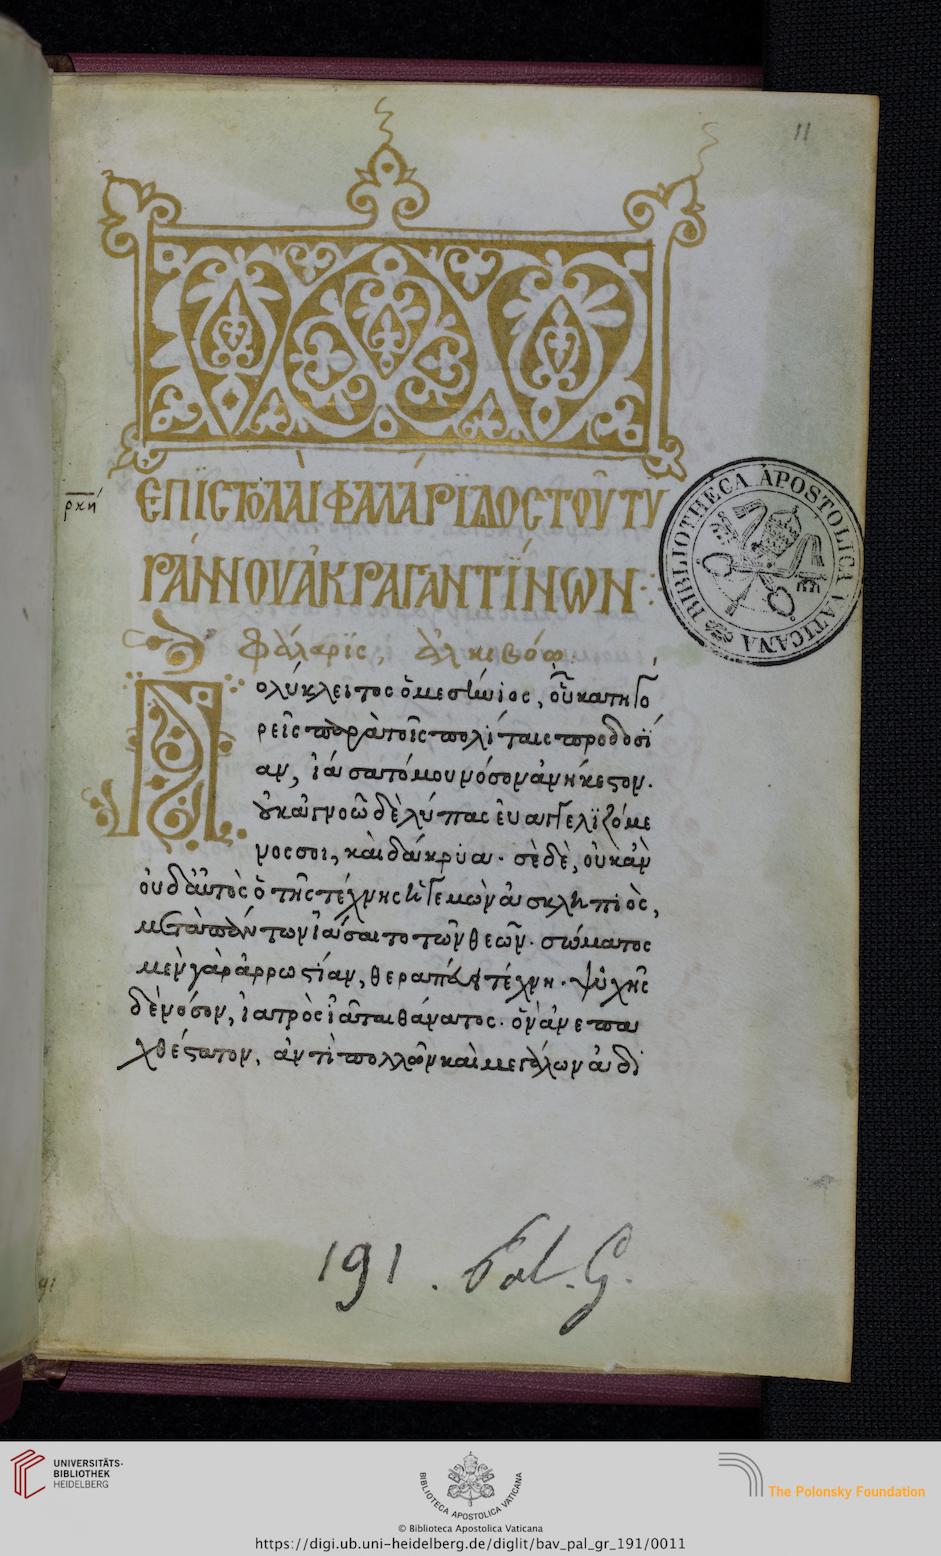 11
ἘΠΙΣΤΟΛΑῚ ΦΑΛΆΡΙΔΟΣ ΤΟΥ͂ ΤΥ
ΡΆΝΝΟΥ ἈΚΡΑΓΑΝΤΊΝΩΝ:
ρκη
Φάλαρϊς, Ἀλκιβόῳ.
Πολύκλειτος ὁ μεσσήνιος, οὗ κατηγο
ρεῖς παρὰ τοῖς πολίταις προδοσί
αν, ἰάσατό μου νόσον ἀνήκεστον.
οὐκ ἀγνοῶ δὲ λύπας εὐαγγελϊζόμε
νος σοι, καὶ δάκρυα. σὲ δὲ, οὐκ ἂν
οὐδ' αὐτὸς ὁ τῆς τέχνης ἡγεμὼν ἀσκληπιὸς,
μετὰ πάντων ἰάσαιτο τῶν θεῶν. σώματος
μὲν γὰρ ἀρρωστίαν, θεραπεύει τέχνη. ψυχῆς
δὲ νόσον, ἰατρὸς ἰᾶται θάνατος. ὃν ἀνεπα
χθέστατον, ἀντὶ πολλῶν καὶ μεγάλων ἀδι
191. Pal. G.
BIBLIOTHECA APOSTOLICA VATICANA
UNIVERSITÄTS-
BIBLIOTHEK
HEIDELBERG
BIBLIOTECA APOSTOLICA VATICANA
The Polonsky Foundation
© Biblioteca Apostolica Vaticana
https://digi.ub.uni-heidelberg.de/diglit/bav_pal_gr_191/0011